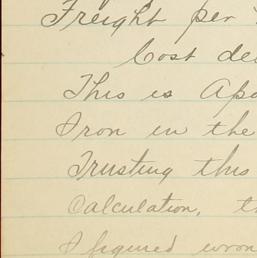 Freight per
Cost de
This is Apo
Iron in the
Trusting this
Calculation, th
I figured wron